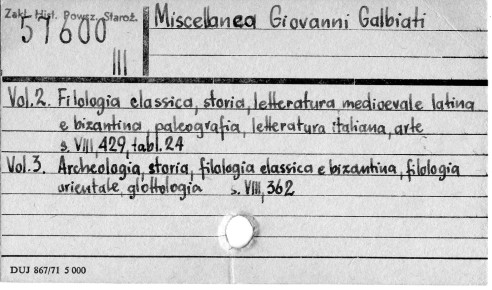 Zakł. Hist. Powsz. Staroż.
57600
III
Miscellanea Giovanni Galbiati
Vol.2. Filologia classica, storia, letteratura medioevale latina
e bizantina, paleografia, letteratura italiana, arte
s. VIII, 429, tabl. 24
Vol.3. Archeologia, storia, filologia classica e bizantina, filologia
orientale, glottologia s. VIII, 362
DUJ 867/71 5 000